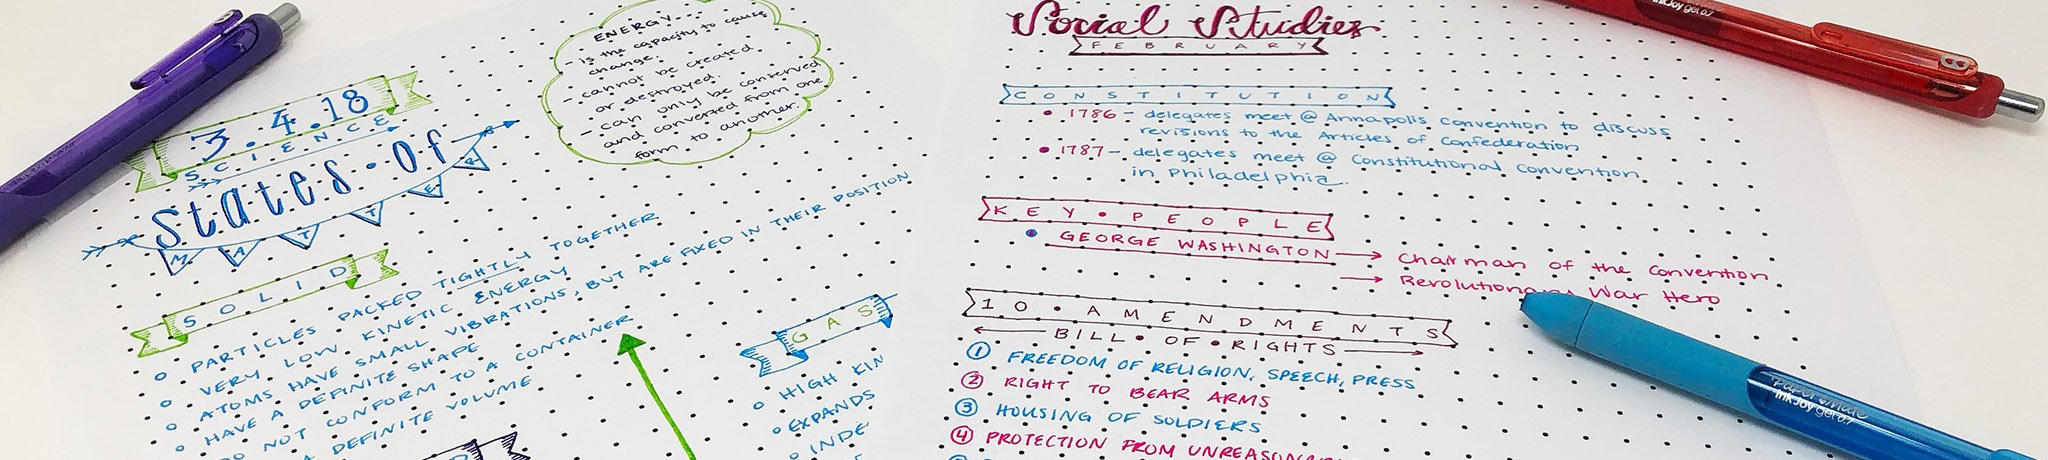 3.4.18
SCIENCE
States Of
MATTER
ENERGY
- is the capacity to cause
change.
- cannot be created
or destroyed.
- can only be conserved
and converted from one
form to another.
SOLID
PARTICLES PACKED TIGHTLY TOGETHER
VERY LOW KINETIC ENERGY
ATOMS HAVE SMALL VIBRATIONS, BUT ARE FIXED IN THEIR POSITION
HAVE A DEFINITE SHAPE
DO NOT CONFORM TO A CONTAINER
A DEFINITE VOLUME
GAS
HIGH KIN
EXPANDS
INDE
Social Studies
FEBRUARY
CONSTITUTION
• 1786 - delegates meet @ Annapolis convention to discuss
revisions to the Articles of Confederation
• 1787 - delegates meet @ Constitutional convention
in Philadelphia.
KEY • PEOPLE
• GEORGE WASHINGTON → Chairman of the Convention
→ Revolutionary War Hero
10 • AMENDMENTS
← BILL • OF • RIGHTS →
① FREEDOM OF RELIGION, SPEECH, PRESS
② RIGHT TO BEAR ARMS
③ HOUSING OF SOLDIERS
④ PROTECTION FROM UNREASONAB
InkJoy gel 0.7
Paper Mate
InkJoy gel 0.7